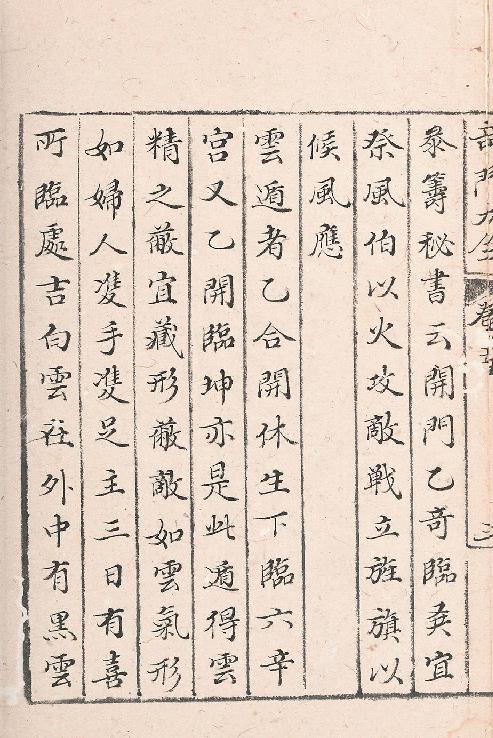 叅籌秘書云開門乙奇臨巽宜
祭風伯以火攻敵戦立旌旗以
候風應
雲遁者乙合開休生下臨六辛
宫又乙開臨坤亦是此遁得雲
精之蔽宜藏形蔽敵如雲氣形
如婦人雙手雙足主三日有喜
所臨處吉白雲在外中有黒雲